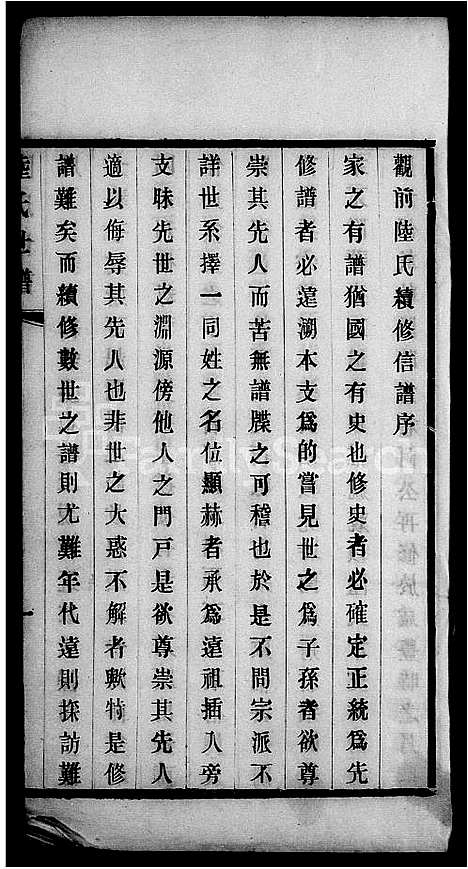 觀前陸氏續修信譜序
家之有譜猶國之有史也修史者必確定正統爲先
修譜者必遠溯本支爲的嘗見世之爲子孫者欲尊
崇其先人而苦無譜牒之可稽也於是不問宗派不
詳世系擇一同姓之名位顯赫者承爲遠祖插入旁
支昧先世之淵源傍他人之門戶是欲尊崇其先人
適以侮辱其先人也非世之大惑不解者歟特是修
譜難矣而續修數世之譜則尤難年代遠則採訪難
陸氏世譜
一
FamilySearch